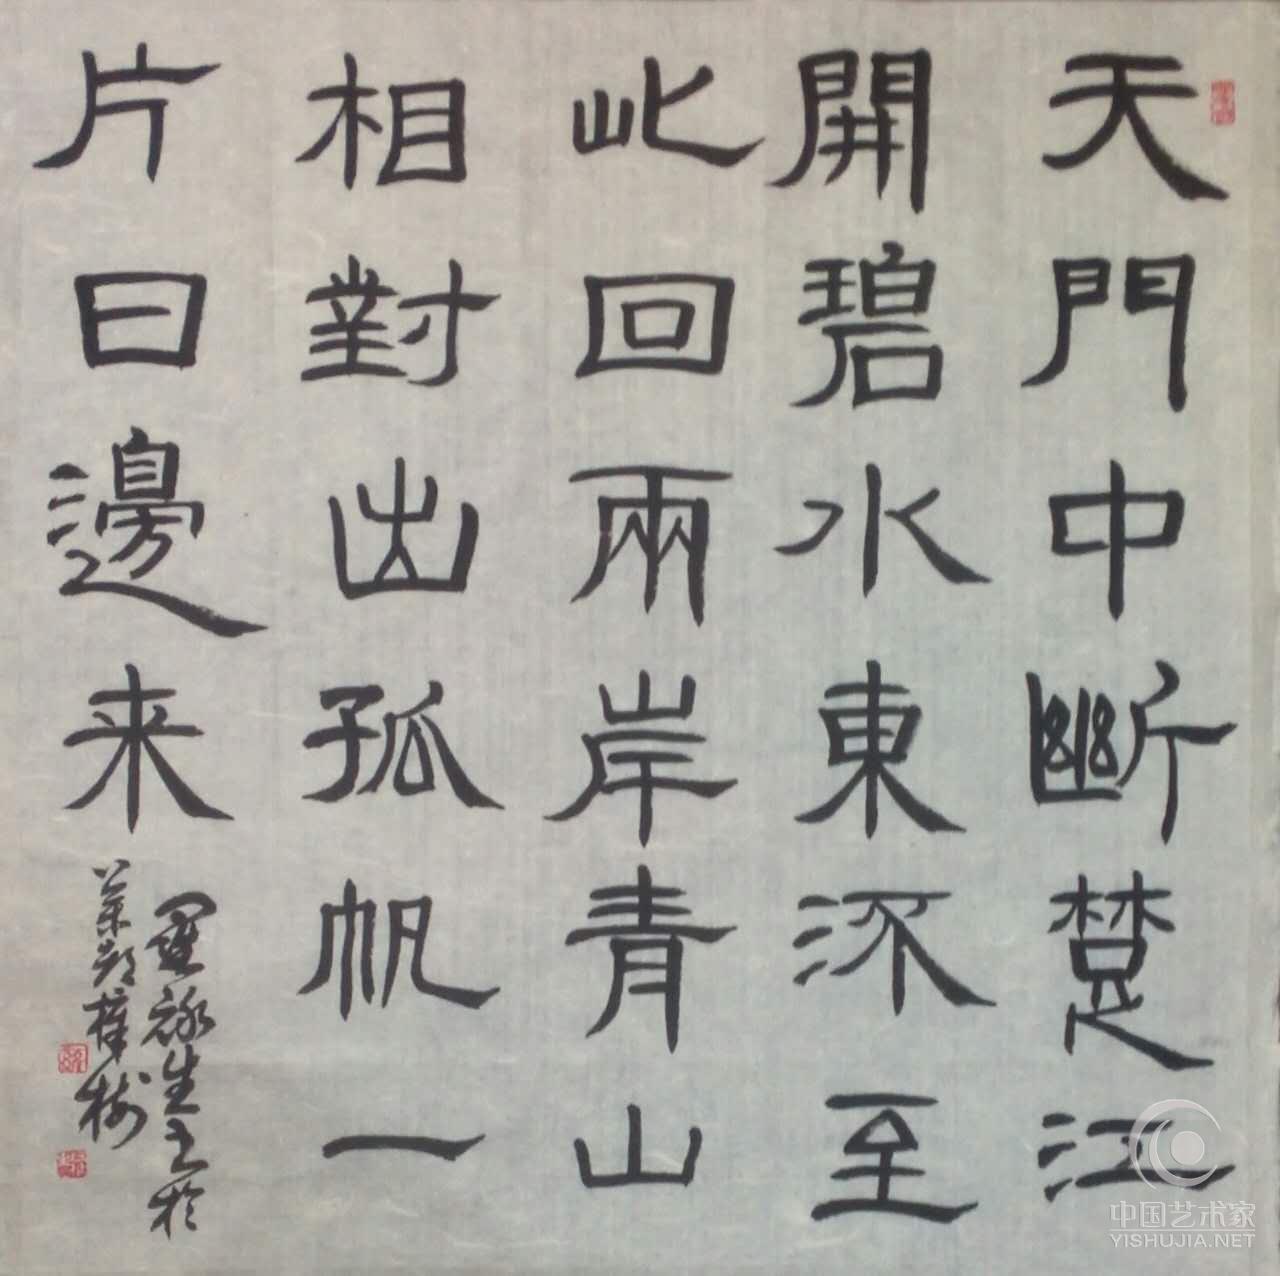 天門中斷楚江
開碧水東流至
此回兩岸青山
相對出孤帆一
片日邊来
羅祿生书於
藥都樟树
中国艺术家
YISHUJIA.NET